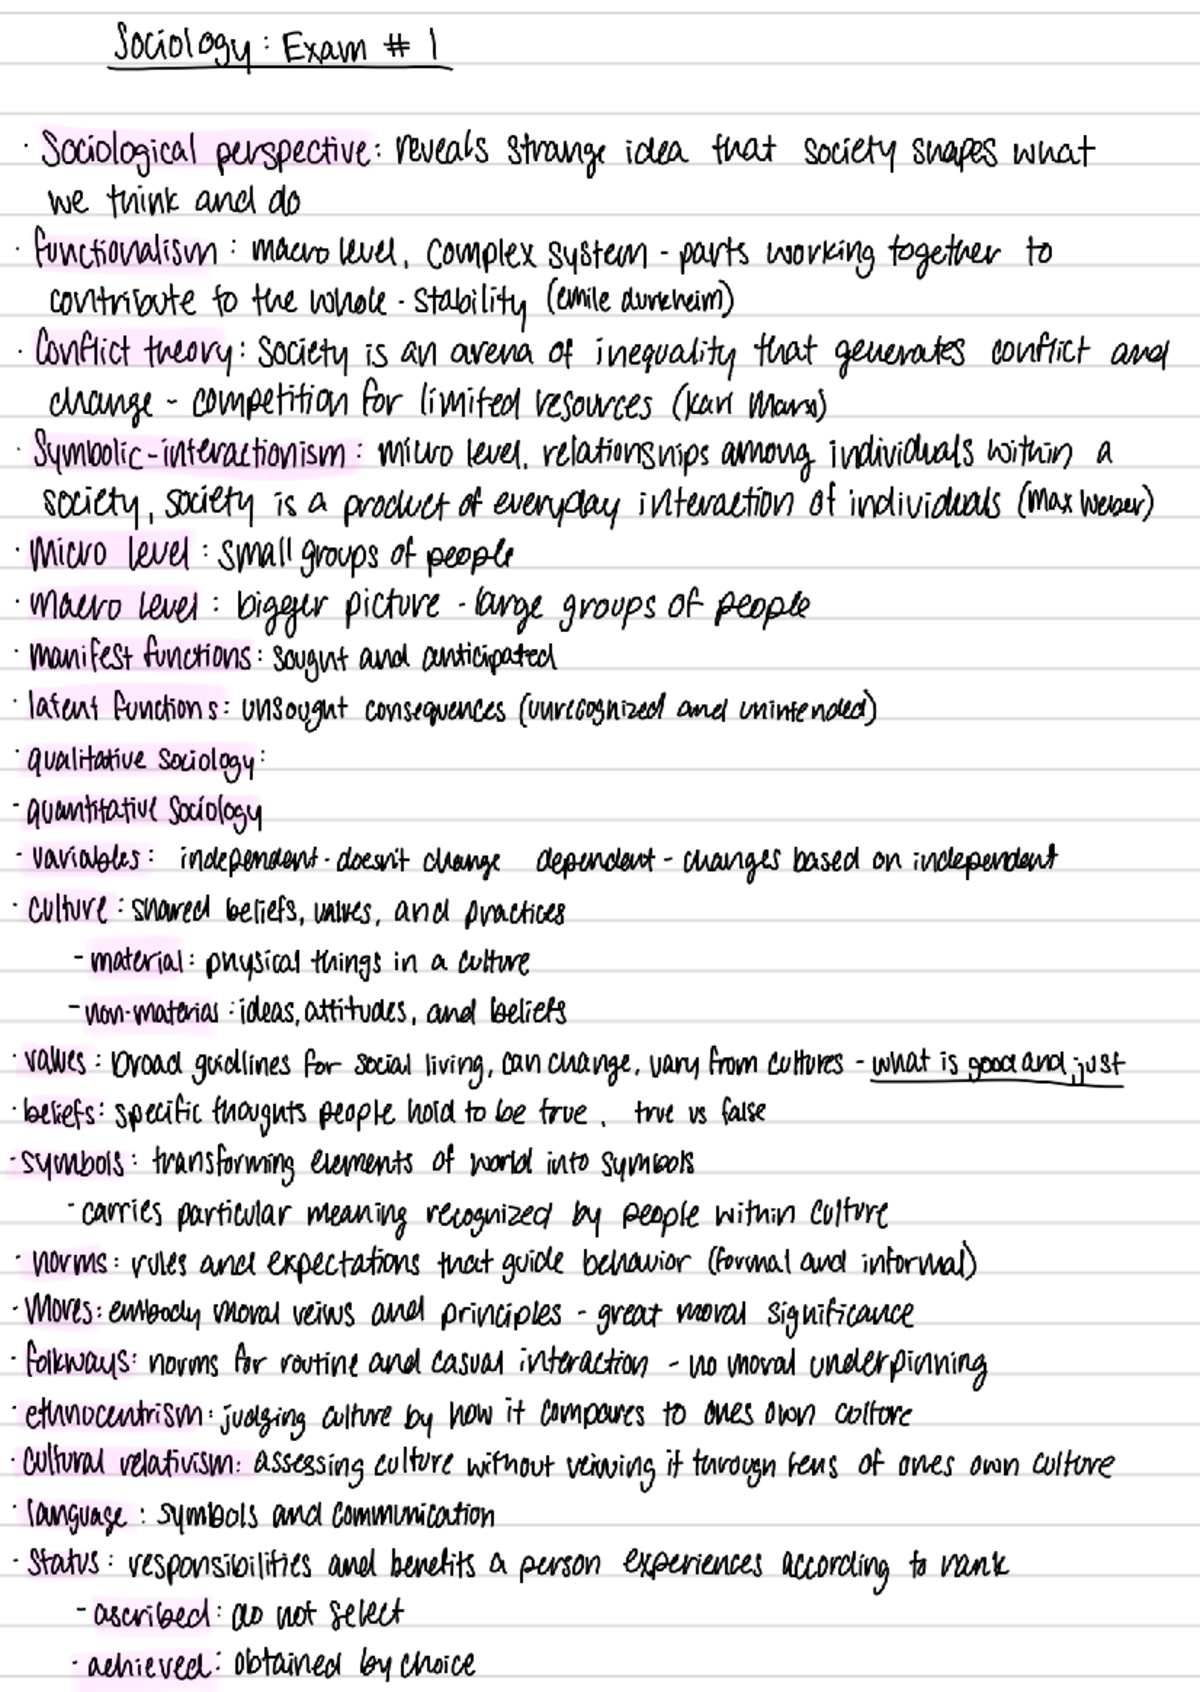 Sociology: Exam # 1
· Sociological perspective: reveals strange idea that society shapes what
we think and do
· functionalism: macro level, complex system - parts working together to
contribute to the whole - stability (emile durkheim)
· Conflict theory: society is an arena of inequality that generates conflict and
change - competition for limited resources (Karl Marx)
· Symbolic-interactionism: micro level, relationships among individuals within a
society, society is a product of everyday interaction of individuals (Max Weber)
· Micro level: small groups of people
· macro level: bigger picture - large groups of people
· manifest functions: sought and anticipated
· latent functions: unsought consequences (unrecognized and unintended)
· qualitative sociology:
- quantitative Sociology
- variables: independent - doesn't change dependent - changes based on independent
· culture: shared beliefs, values, and practices
- material: physical things in a culture
- non-material: ideas, attitudes, and beliefs
· values: broad guidlines for social living, can change, vary from cultures - what is good and just
· beliefs: specific thoughts people hold to be true. true vs false
· symbols: transforming elements of world into symbols
- carries particular meaning recognized by people within culture
· norms: rules and expectations that guide behavior (formal and informal)
· Mores: embody moral veiws and principles - great moral significance
· folkways: norms for routine and casual interaction - no moral underpinning
· ethnocentrism: judging culture by how it compares to ones own culture
· cultural relativism: assessing culture without veiwing it through lens of ones own culture
· language: symbols and communication
· Status: responsibilities and benefits a person experiences according to rank
- ascribed: do not select
- achieved: obtained by choice